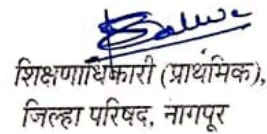 शिक्षणाधिकारी (प्राथमिक),
जिल्हा परिषद, नागपूर